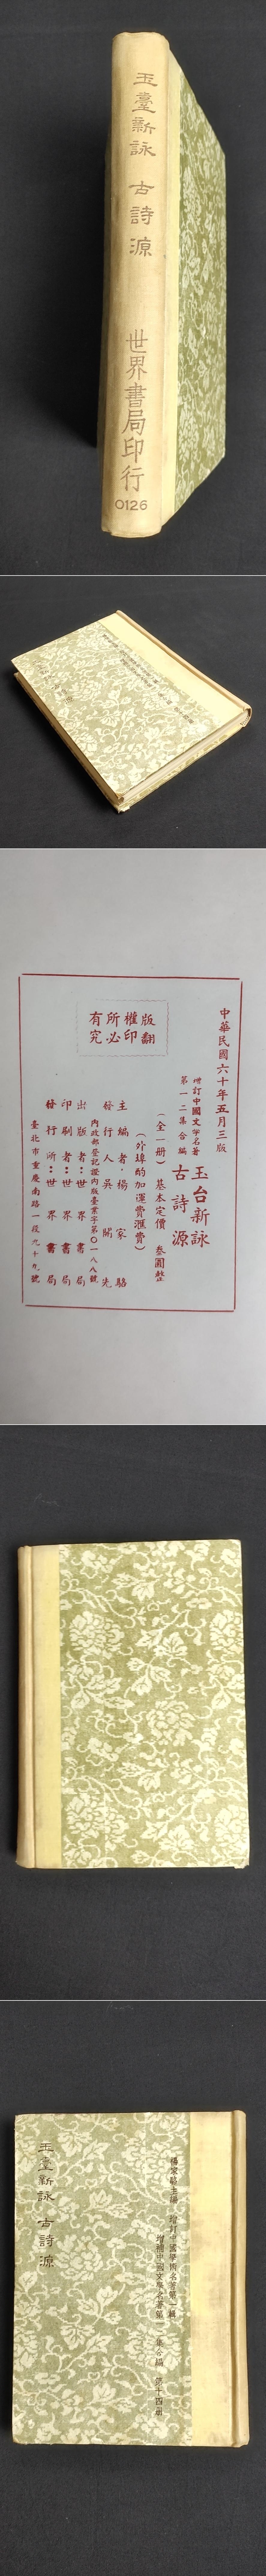 玉臺新詠 古詩源
世界書局印行
0126
中華民國六十年五月三版
增訂中國文學名著
第一二集合編
玉台新詠
古詩源
(全一冊) 基本定價 叁圓整
(外埠酌加運費滙費)
主編者·楊家駱
發行人吳開先
內政部登記證內版臺業字第〇一八八號
出版者:世界書局
印刷者:世界書局
發行所:世界書局
臺北市重慶南路一段九十九號
版權所有
翻印必究
楊家駱主編 增訂中國學術名著第一輯
增補中國文學名著第一集合編 第十四冊
玉臺新詠 古詩源